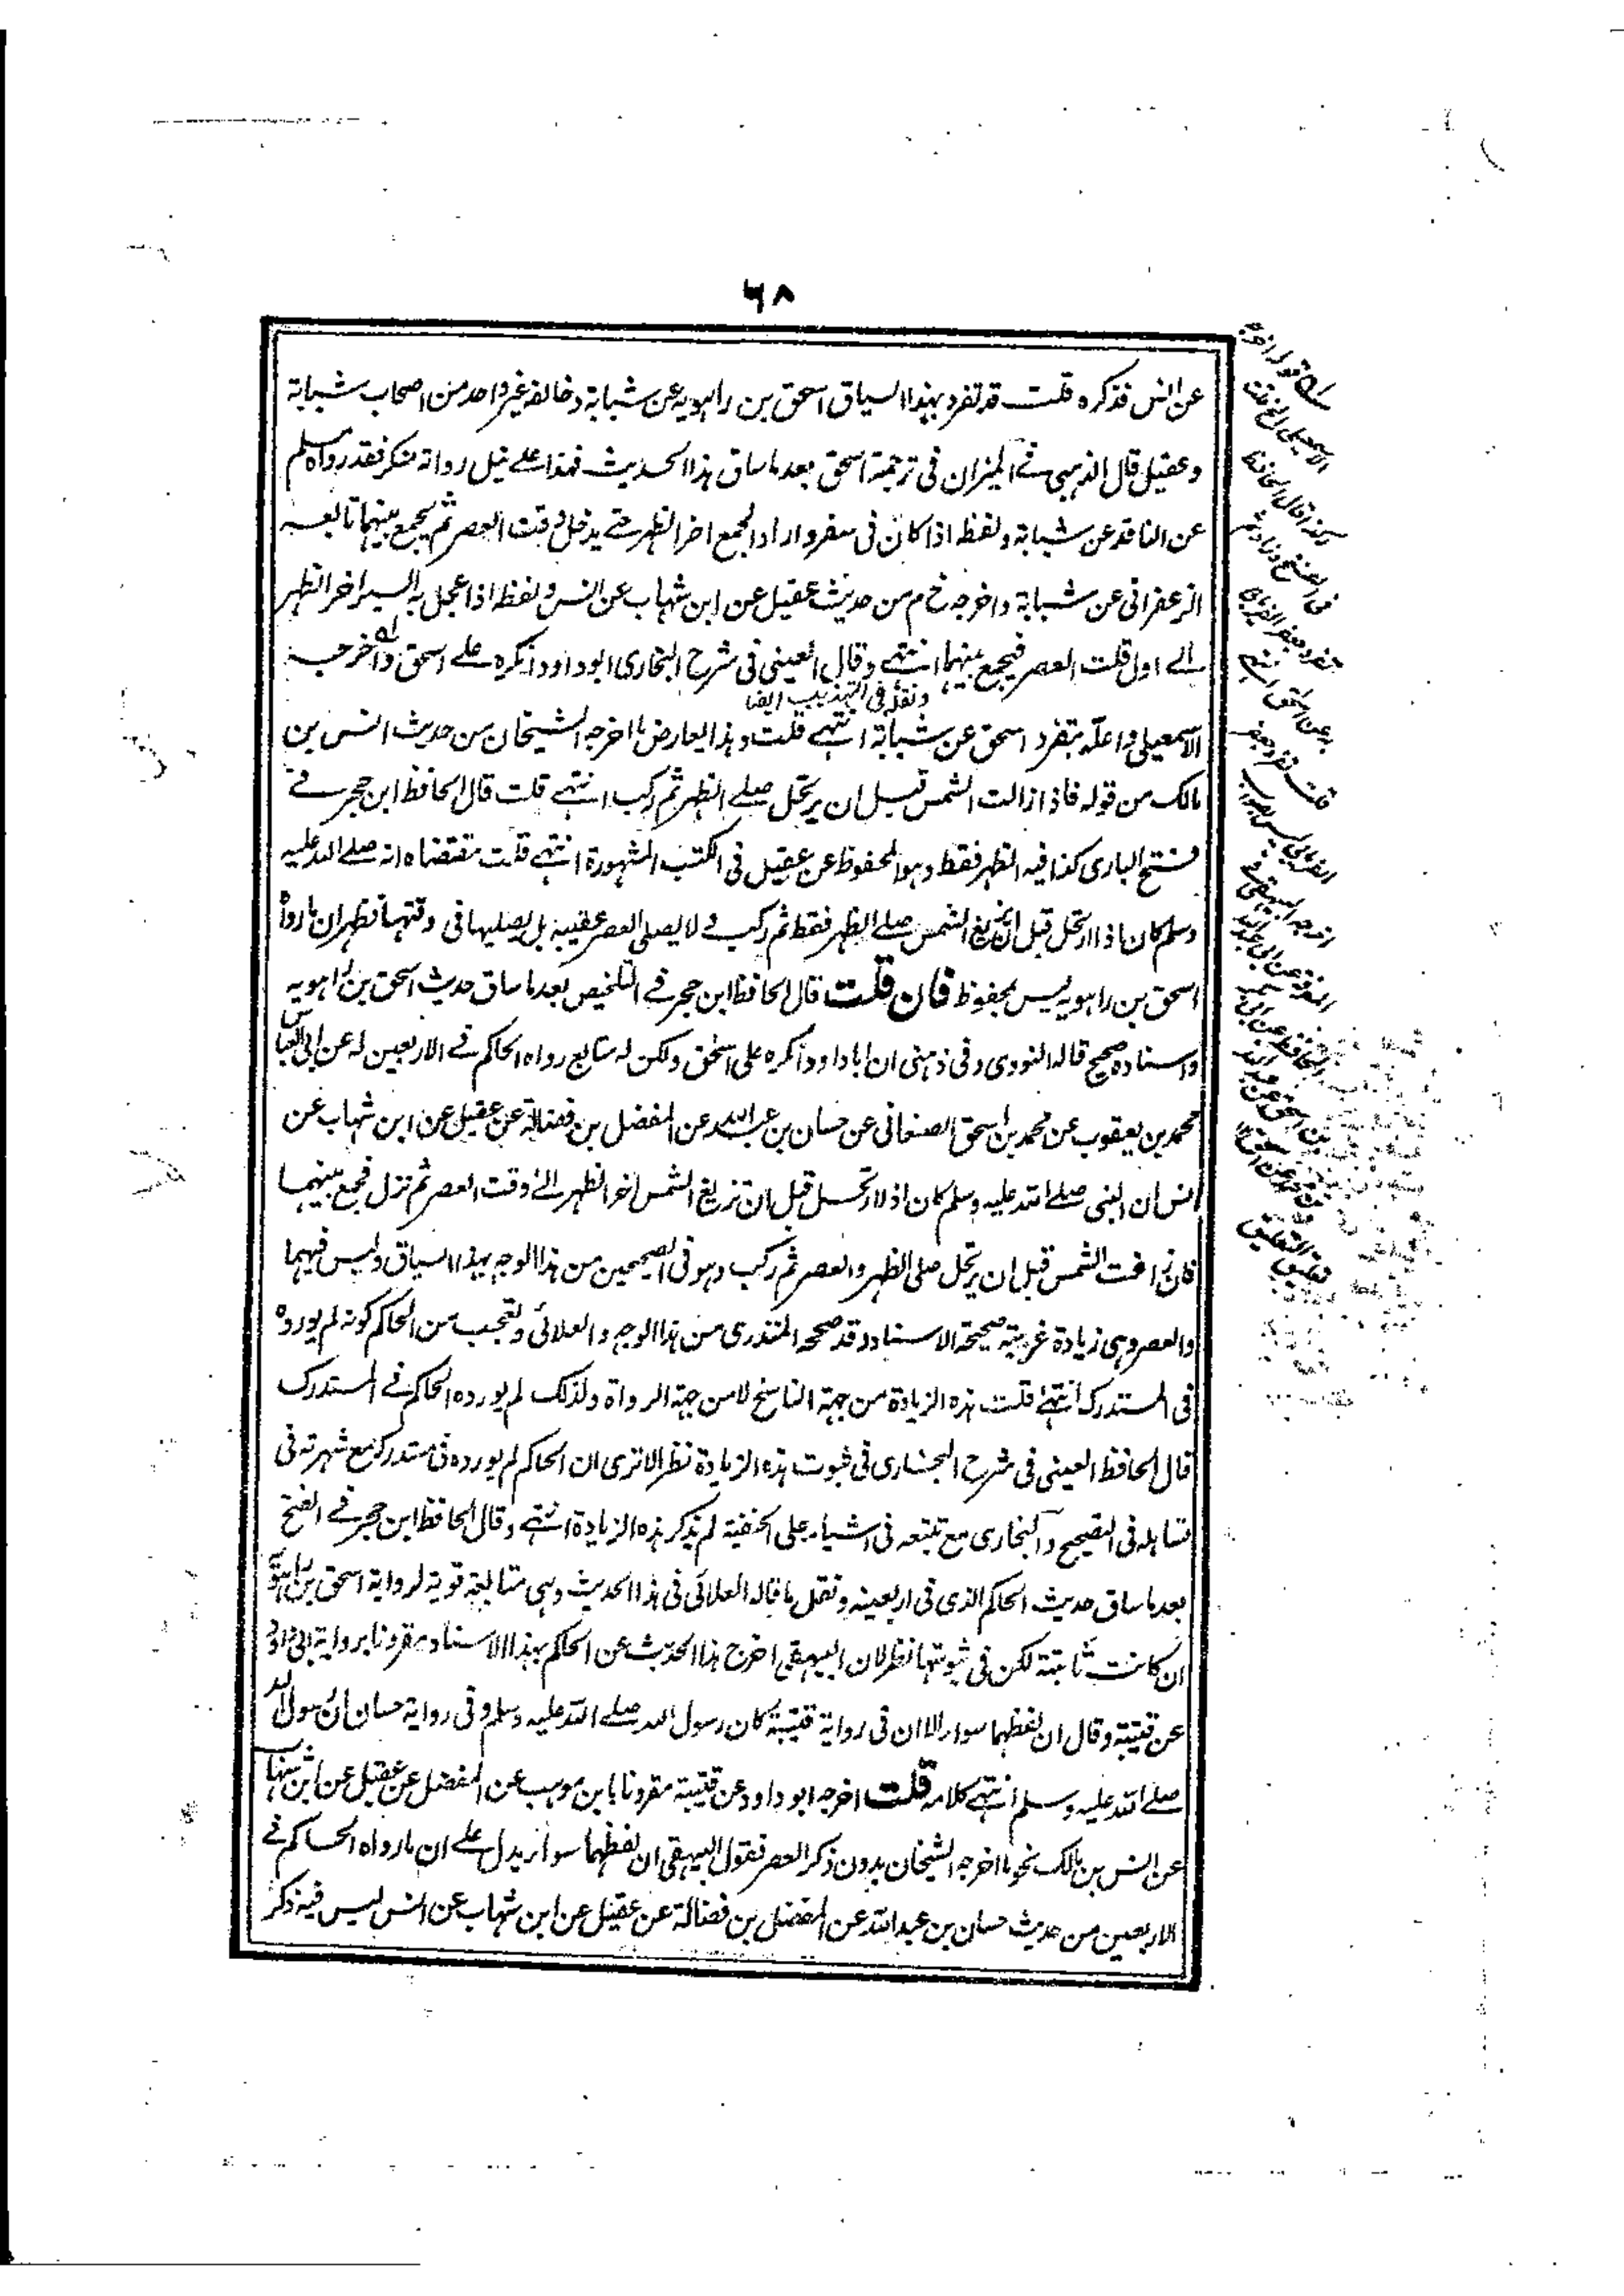 ٦٨
عن انس فذكره قلت قد تفرد بهذا السياق اسحق بن راهويه عن شبابة وخالفه غير واحد من اصحاب شبابة
وعقيل قال الذهبي في الميزان في ترجمة اسحق بعد ما ساق هذا الحديث فهذا على نبل رواته منكر فقد رواه مسلم
عن الناقد عن شبابة ولفظه اذا كان في سفر واراد الجمع اخر الظهر حتى يدخل وقت العصر ثم يجمع بينهما تابعه
الزعفراني عن شبابة واخرجه خ م من حديث عقيل عن ابن شهاب عن انس ولفظه اذا عجل به السير اخر الظهر
الى اول وقت العصر فيجمع بينهما انتهى وقال العيني في شرح البخاري ابو داود انكره على اسحق واخرجه
ونقله في التهذيب ايضا
الاسمعيلي واعله بتفرد اسحق عن شبابة انتهى قلت وهذا يعارض ما اخرجه الشيخان من حديث انس بن
مالك من قوله فاذا زالت الشمس قبل ان يرتحل صلى الظهر ثم ركب انتهى قلت قال الحافظ ابن حجر في
فتح الباري كذا فيه الظهر فقط وهو المحفوظ عن عقيل في الكتب المشهورة انتهى قلت مقتضاه انه صلى الله عليه
وسلم كان اذا ارتحل قبل ان تزيغ الشمس صلى الظهر فقط ثم ركب لا يصلى العصر عقيبه بل يصليها في وقتها فظهر ان ما رواه
اسحق بن راهويه ليس بمحفوظ فان قلت قال الحافظ ابن حجر في التلخيص بعد ما ساق حديث اسحق بن راهويه
واسناده صحيح قاله النووي وفي ذهني ان ابا داود انكره على اسحق ولكن له متابع رواه الحاكم في الاربعين له عن ابي العباس
محمد بن يعقوب عن محمد بن اسحق الصنعاني عن حسان بن عبد الله عن المفضل بن فضالة عن عقيل عن ابن شهاب عن
انس ان النبي صلى الله عليه وسلم كان اذا ارتحل قبل ان تزيغ الشمس اخر الظهر الى وقت العصر ثم نزل فجمع بينهما
فان زاغت الشمس قبل ان يرتحل صلى الظهر والعصر ثم ركب وهو في الصحيحين من هذا الوجه بهذا السياق وليس فيهما
والعصر وهي زيادة غريبة صحيحة الاسناد وقد صححه المنذري من هذا الوجه والعلائي وتعجب من الحاكم كونه لم يورده
في المستدرك انتهى قلت هذه الزيادة من جهة الناسخ لا من جهة الرواة ولذلك لم يورده الحاكم في المستدرك
قال الحافظ العيني في شرح البخاري في ثبوت هذه الزيادة نظر الا ترى ان الحاكم لم يورده في مستدركه مع شهرته في
تساهله في التصحيح والبخاري مع تتبعه في اشياء على الحنفية لم يذكر هذه الزيادة انتهى وقال الحافظ ابن حجر في الفتح
بعد ما ساق حديث الحاكم الذي في اربعينه ونقل ما قاله العلائي في هذا الحديث وهي متابعة قوية لرواية اسحق بن راهويه
ان كانت ثابتة لكن في ثبوتها نظر لان البيهقي اخرج هذا الحديث عن الحاكم بهذا الاسناد مقرونا برواية ابي داود
عن قتيبة وقال ان لفظهما سواء الا ان في رواية قتيبة كان رسول الله صلى الله عليه وسلم وفي رواية حسان ان رسول الله
صلى الله عليه وسلم انتهى كلامه قلت اخرجه ابو داود عن قتيبة مقرونا بابن موهب عن المفضل عن عقيل عن ابن شهاب
عن انس بن مالك نحو ما اخرجه الشيخان بدون ذكر العصر فقول البيهقي ان لفظهما سواء يدل على ان ما رواه الحاكم في
الاربعين من حديث حسان بن عبد الله عن المفضل بن فضالة عن عقيل عن ابن شهاب عن انس ليس فيه ذكر